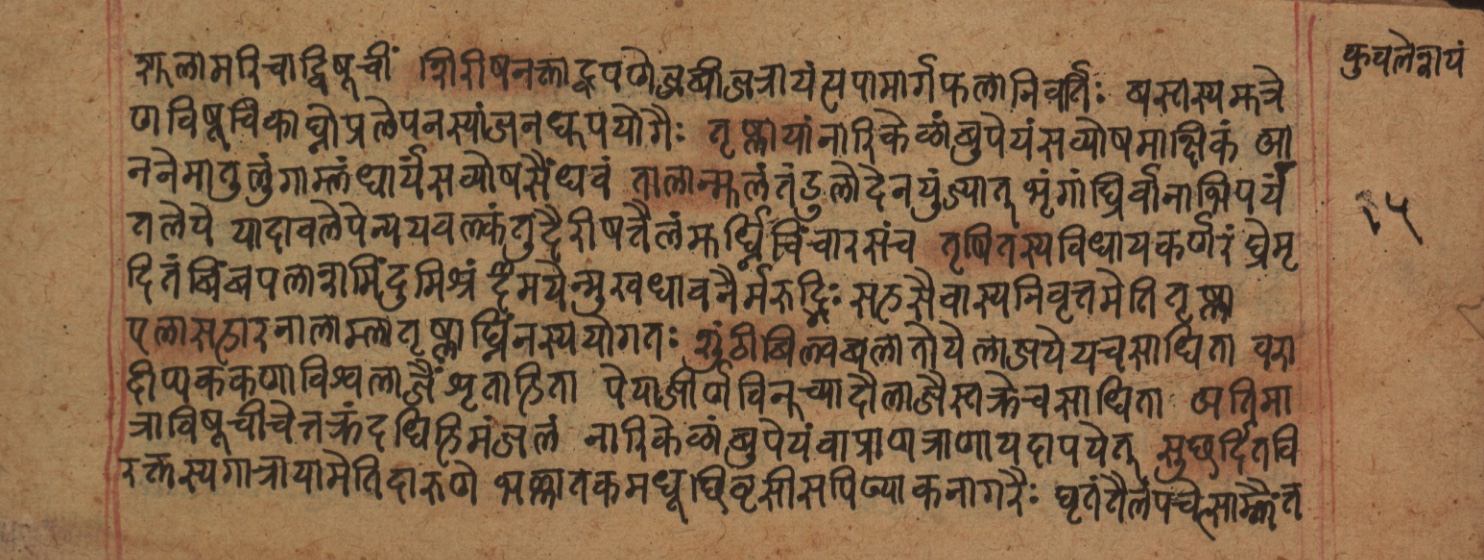 मूलामरिचाद्विषूचीं शिरीषनक्ताह्वपणेज्जबीजत्रायंत्यपामार्गफलानिवर्तिः बस्तस्यमूत्रे
ण विषूचिकाघ्नो प्रलेपनस्यांजनधूपयोगैः तृष्णायांनारिकेळांबुपेयंसव्योषमाक्षिकं आ
ननेमातुलुंगाम्लंधार्यंसव्योषसैंधवं तालान्मूलंतंडुलोदेनयुंज्यात् भृंगांघ्रिर्वानाभिपर्यं
तलेपे यादावलेपेन्य यवल्कंतुद्वैरीषत्तैलंमूर्ध्निचिंचारसंच तृषितस्यविधायकर्णरंध्रेमृ
दितंबिंबपलाशमिंदुमिश्रं मयेन्मुखधावनैर्मरुद्भिः सहसैवास्यनिवृत्तमेतितृष्णा
एलासठारनालाम्लातृष्णाघ्निंनस्ययोगतः शुंठीबिल्वबलातोयेलाजपेयचसाधिता वरा
दीप्यककणाविश्वलाजैंशृताहिता पेयाजीर्णविनूच्यादौलाजैस्तक्रेचसाधिता अतिमा
त्राविषूचीचेत्तक्रंदधिहिमंजलं नारिकेळांबुपेयंवाप्राणत्राणायदापयेत् सुछर्दितवि
रक्तस्यगात्रायामेतिदारुणे भल्लातकमधूछिवृसीसपिण्याकनागरैः घृतंतैलंपचेत्साम्लैंत
कुचलेशयं
१५